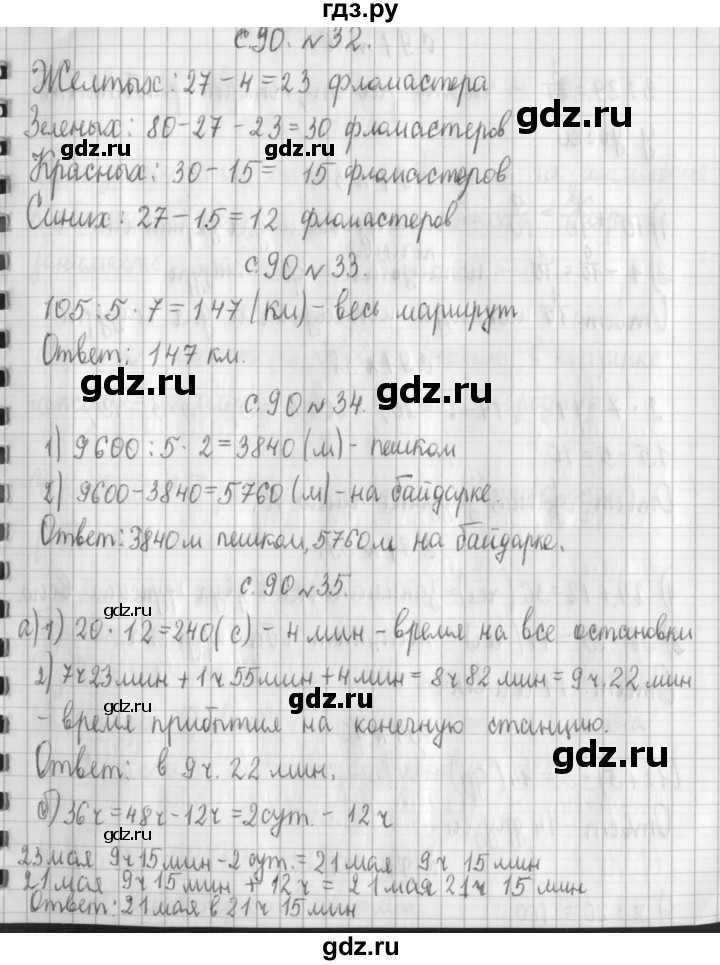 гдз.ру
с.90. №32.
Желтых: 27-4=23 фломастера
Зеленых: 80-27-23=30 фломастеров
gdz.ru gdz.ru
Красных: 30-15= 15 фломастеров
Синих: 27-15=12 фломастеров
с.90 №33.
105:5·7=147 (км)-весь маршрут
Ответ: 147 км.
gdz.ru gdz.ru
с.90 №34.
1) 9600:5·2=3840 (м)-пешком
2) 9600-3840=5760 (м)-на байдарке.
Ответ: 3840м пешком, 5760м на байдарке.
с.90 №35.
gdz.ru
а) 1) 20·12=240(с) - 4 мин - время на все остановки
2) 7ч23мин + 1ч 55мин + 4мин = 8ч 82 мин = 9ч.22 мин
gdz.ru
- время прибытия на конечную станцию.
Ответ: в 9ч. 22 мин.
gdz.ru
б) 36ч=48ч-12ч=2сут.- 12ч
gdz.ru
23мая 9ч15мин-2 сут.=21мая 9ч 15мин
21мая 9ч15мин + 12ч = 21мая 21ч 15мин
gdz.ru
Ответ: 21мая в 21ч 15мин
gdz.ru